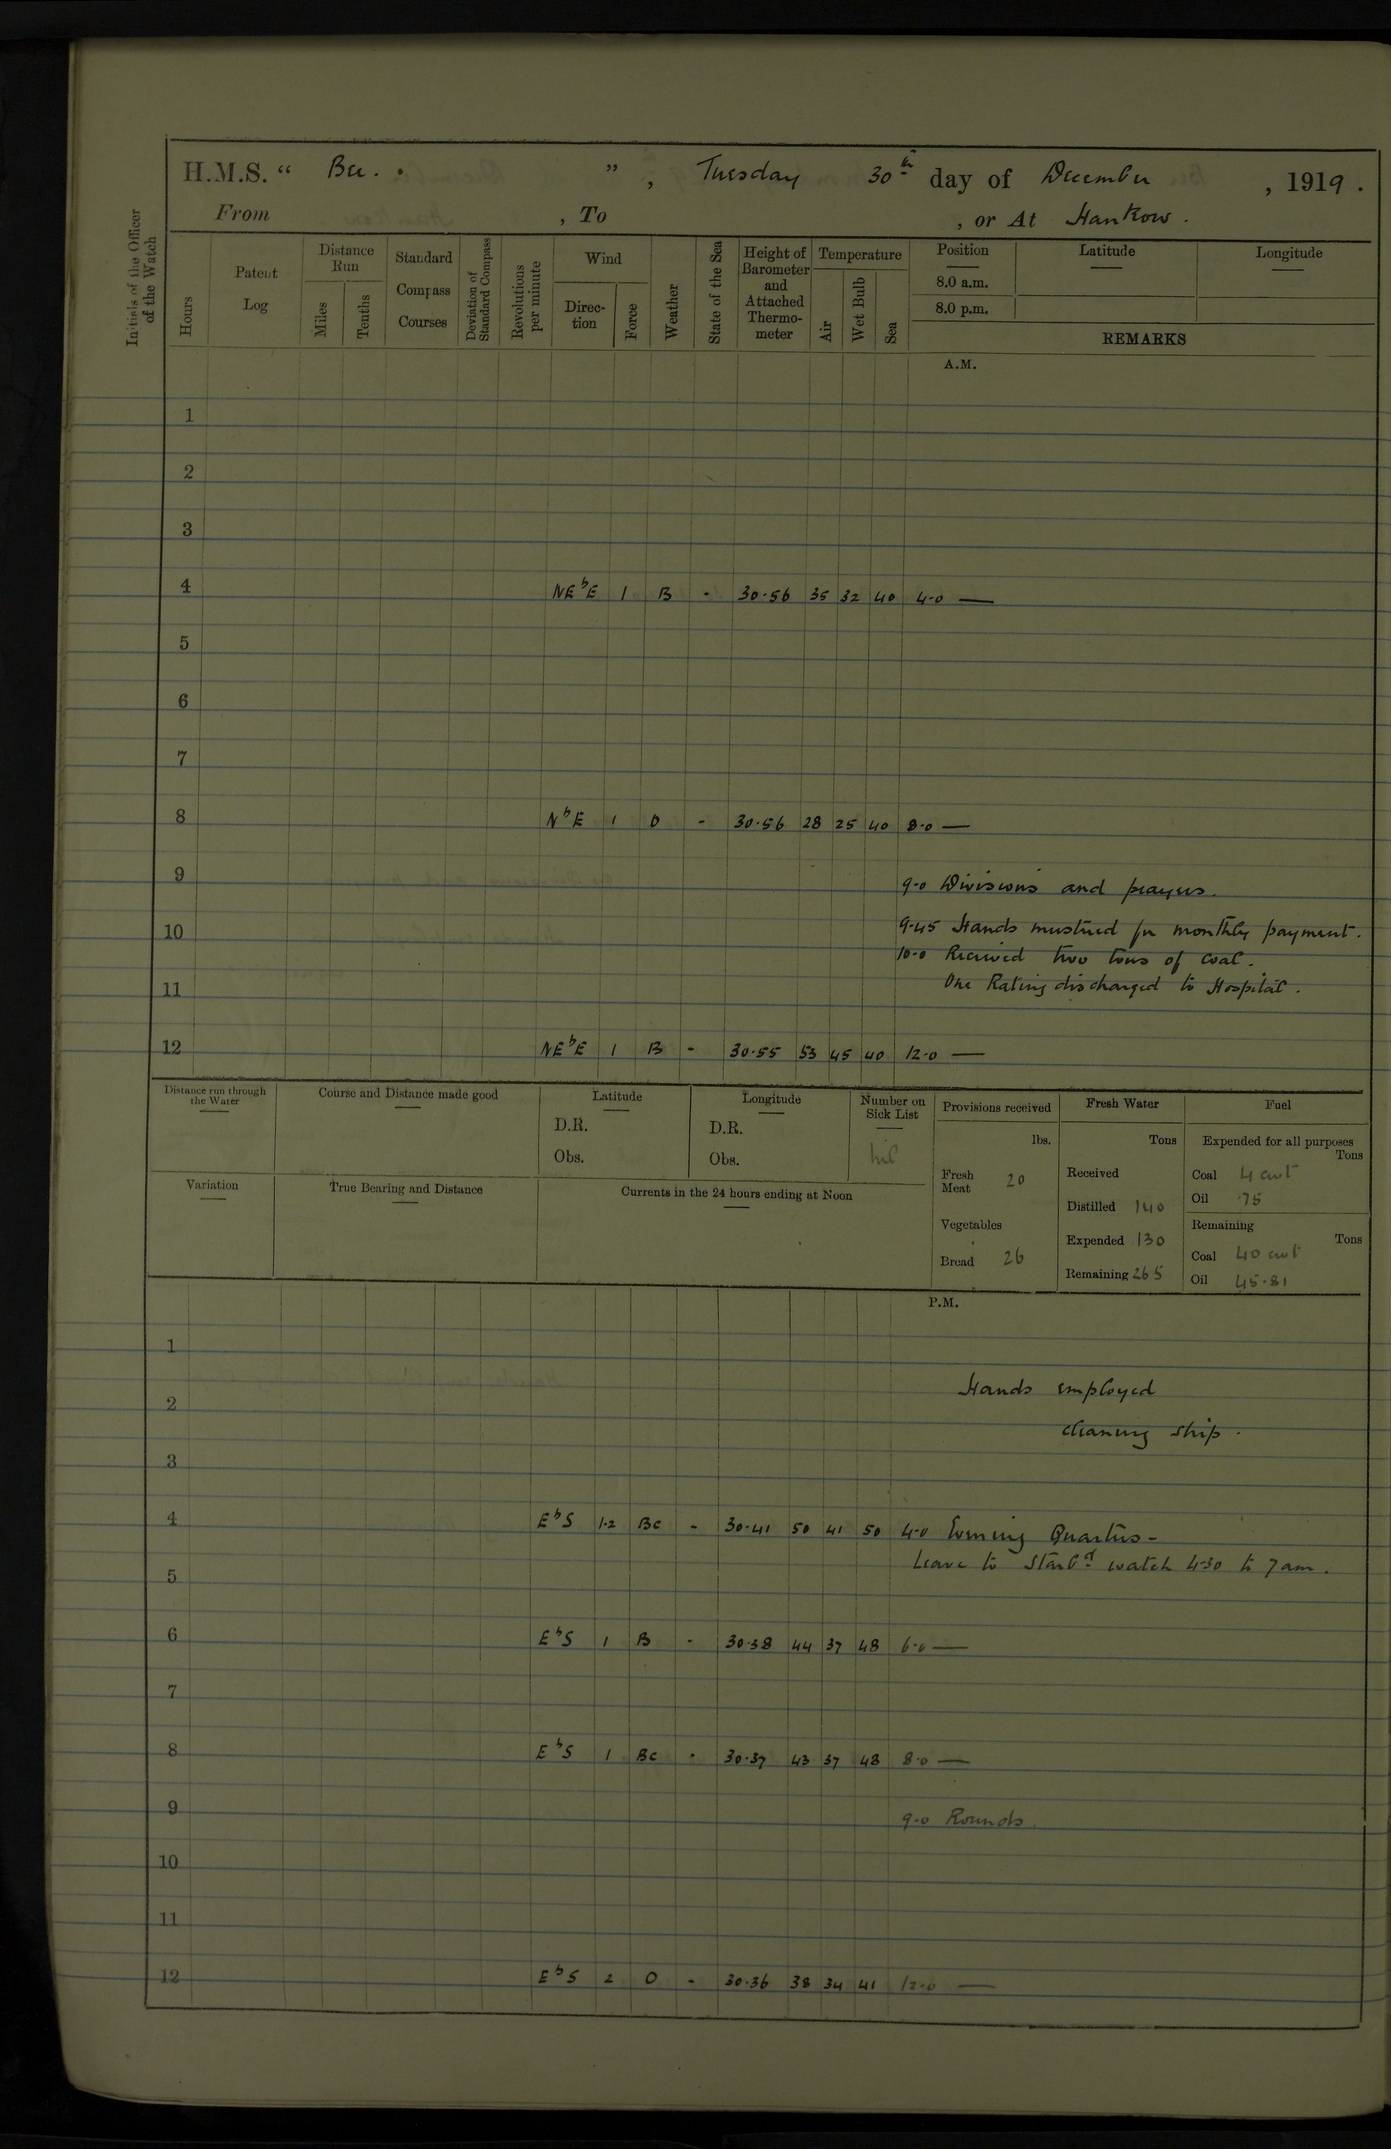 H.M.S. “ Bee. ” , Tuesday 30th day of December , 1919.
From , To , or At Hankow.
Initials of the Officer of the Watch
Hours
Patent Log
Distance Run
Miles
Tenths
Standard Compass Courses
Deviation of Standard Compass
Revolutions per minute
Wind
Direction
Force
Weather
State of the Sea
Height of Barometer and Attached Thermometer
Temperature
Air
Wet Bulb
Sea
Position
Latitude
Longitude
8.0 a.m.
8.0 p.m.
REMARKS
A.M.
1
2
3
4 NEbE 1 B - 30.56 35 32 40 4.0 —
5
6
7
8 NbE 1 O - 30.56 28 25 40 8.0 —
9 9.0 Divisions and prayers.
10 9.45 Hands mustered for monthly payment.
10.0 Received two tons of coal.
11 One Rating discharged to Hospital.
12 NEbE 1 B - 30.55 53 45 40 12.0 —
Distance run through the Water
Course and Distance made good
Latitude
D.R.
Obs.
Longitude
D.R.
Obs.
Number on Sick List
nil
Provisions received
lbs.
Fresh Meat 20
Vegetables
Bread 26
Fresh Water
Tons
Received
Distilled 140
Expended 130
Remaining 265
Fuel
Expended for all purposes
Tons
Coal 4 cwt
Oil .75
Remaining
Tons
Coal 40 cwt
Oil 45.81
Variation
True Bearing and Distance
Currents in the 24 hours ending at Noon
P.M.
1
2 Hands employed
cleaning ship.
3
4 EbS 1.2 Bc - 30.41 50 41 50 4.0 Evening Quarters -
Leave to Starbd watch 4.30 to 7 am.
5
6 EbS 1 B - 30.38 44 37 48 6.0 —
7
8 EbS 1 Bc - 30.37 43 37 48 8.0 —
9 9.0 Rounds.
10
11
12 EbS 2 O - 30.36 38 34 41 12.0 —